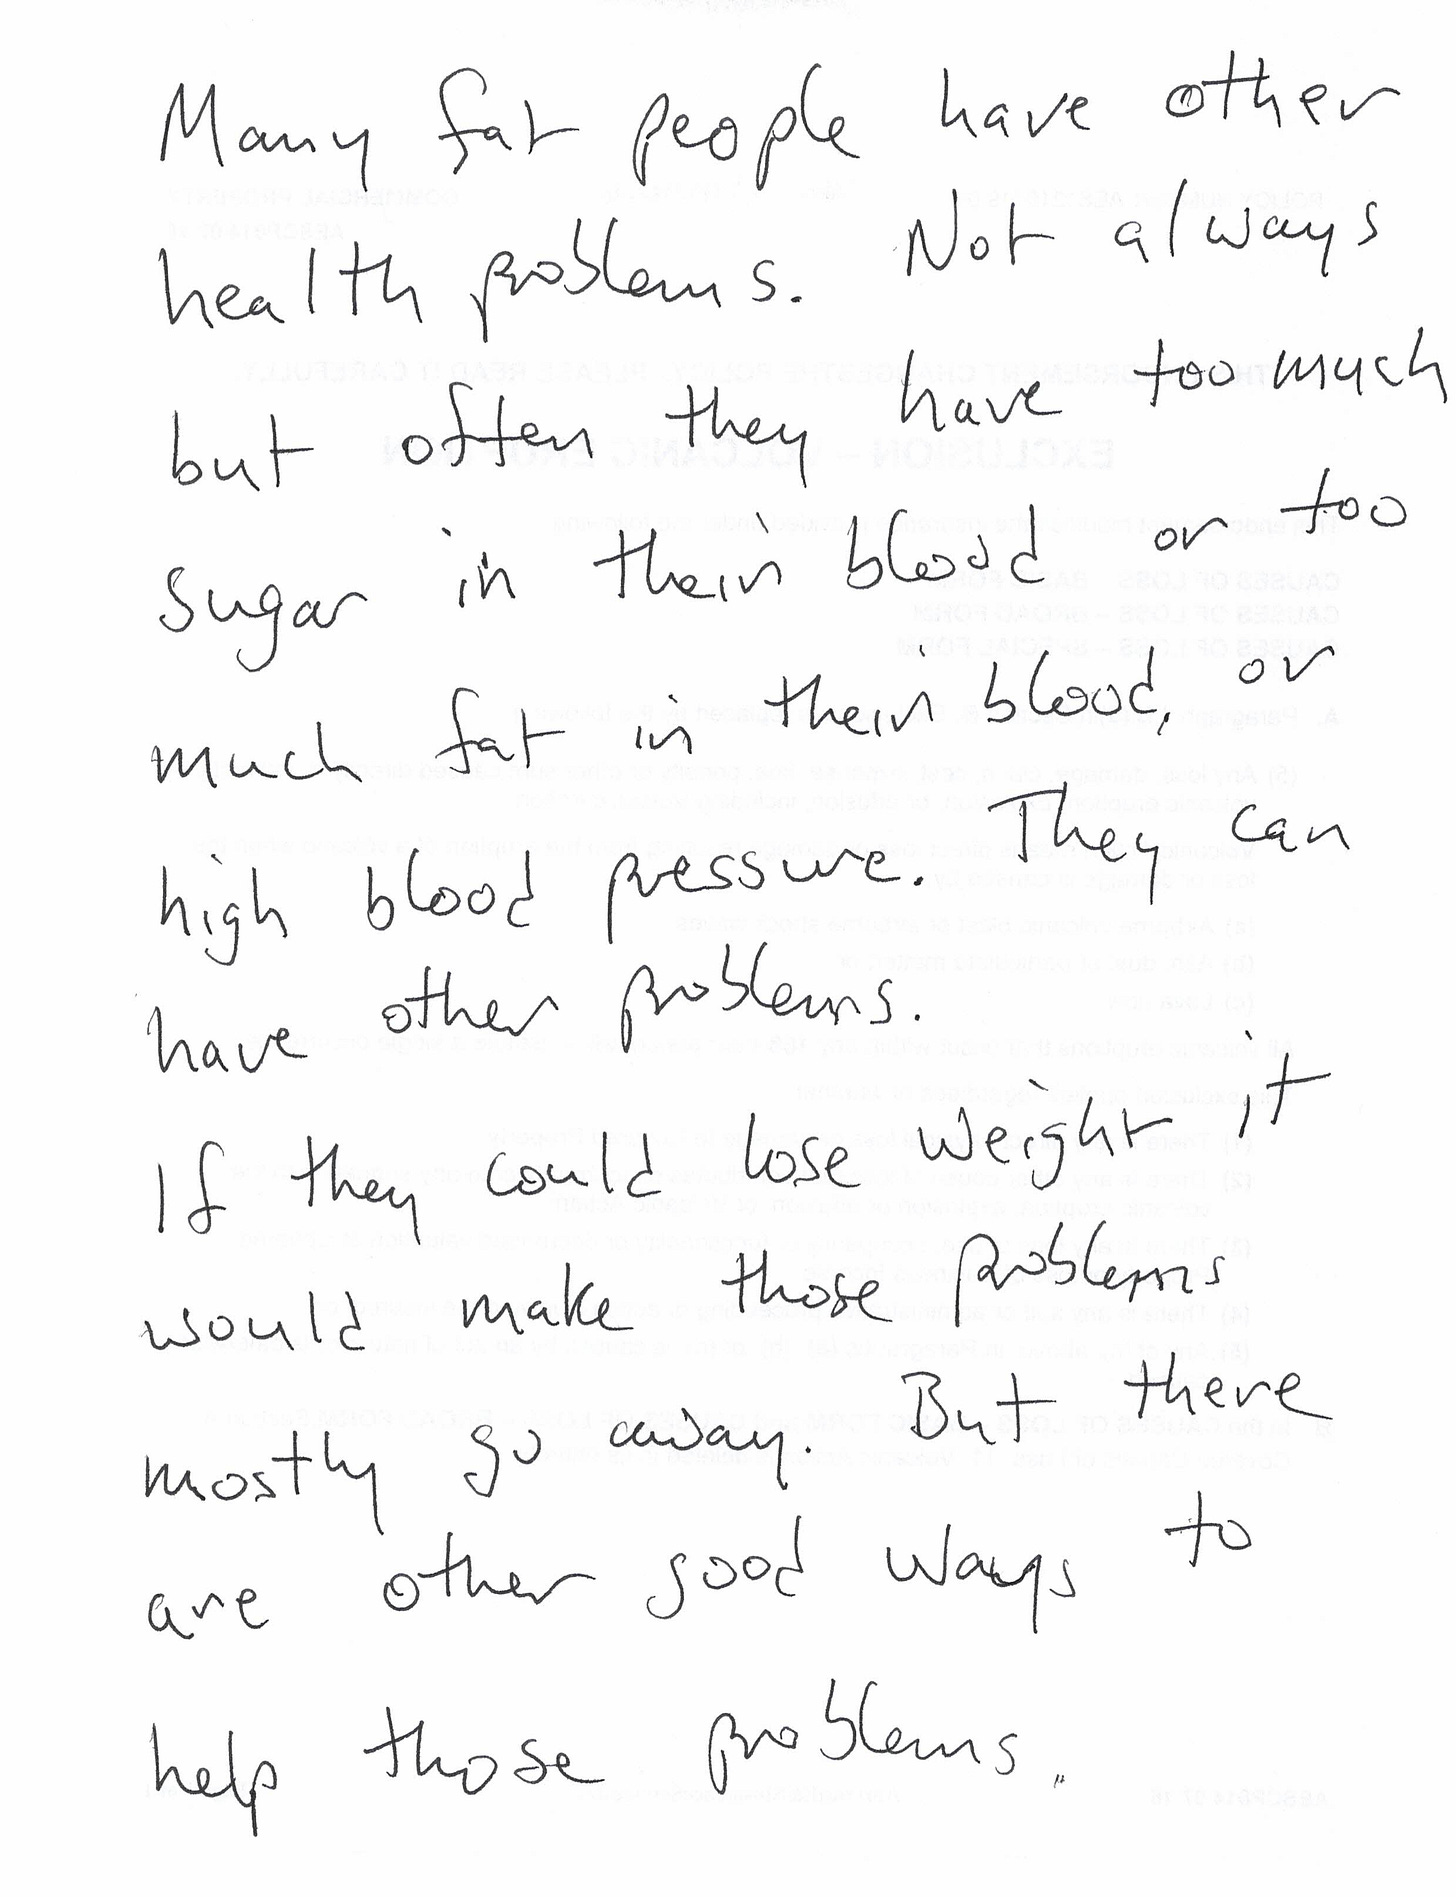 Many fat people have other
health problems. Not always
but often they have too much
sugar in their blood or too
much fat in their blood, or
high blood pressure. They can
have other problems.
If they could lose weight it
would make those problems
mostly go away. But there
are other good ways to
help those problems.